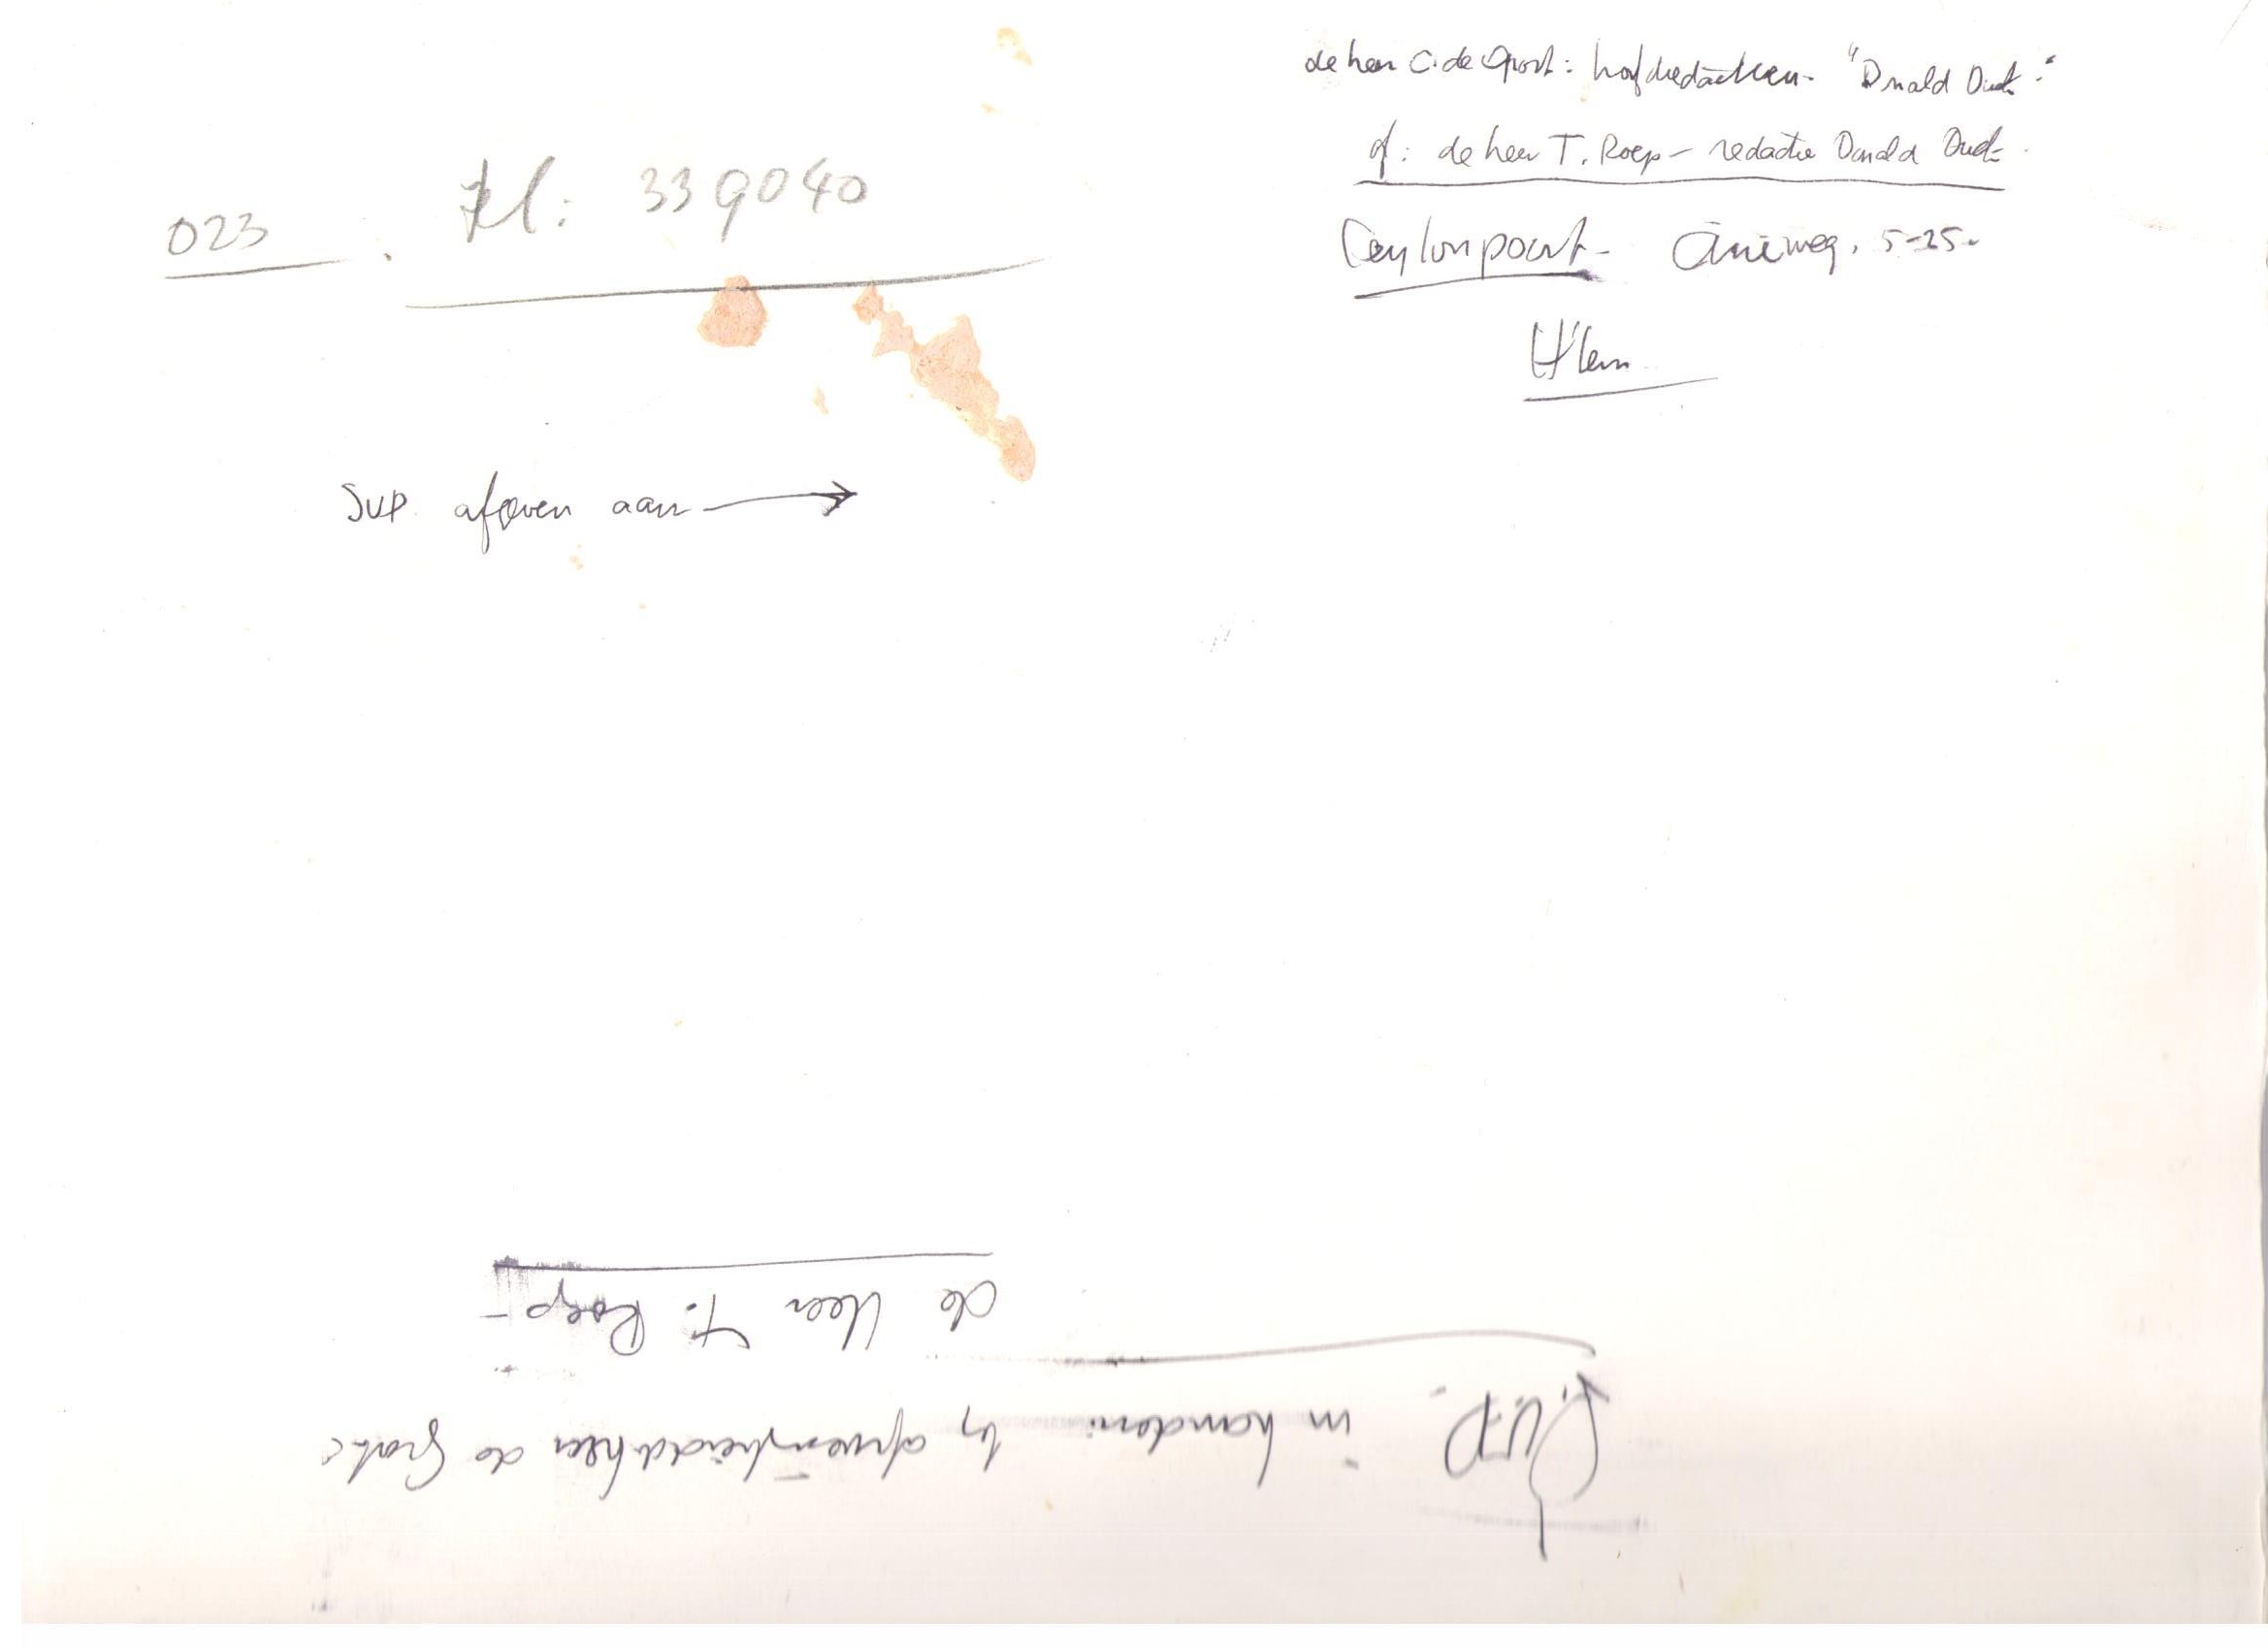 de heer C. de Groot: hoofdredacteur "Donald Duck"
of: de heer T. Roep - redactie Donald Duck.
023 Tel: 339040
Ceylonpoort - 5-25.
H'lem
SVP. afgeven aan →
S.V.P. in handen: bij afwezigheid heer de Groot:
de Heer T. Roep -